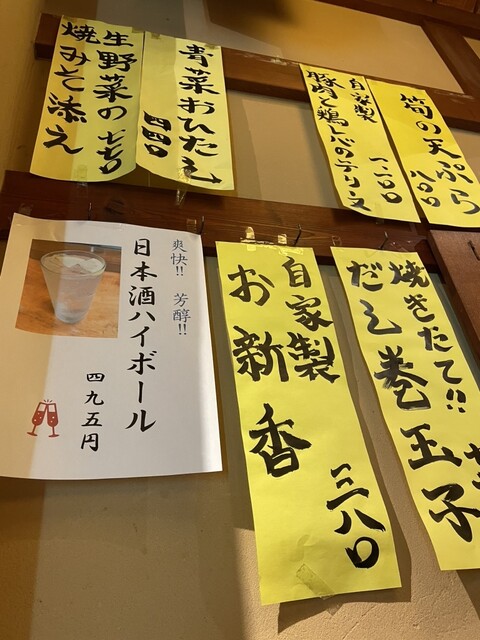 筍の天ぷら
八〇〇
自家製
豚肉と鶏レバのテリーヌ
一、二〇〇
青菜おひたし
四四〇
生野菜の
焼みそ添え
七七〇
焼きたて!!
だし巻玉子
自家製
お新香
三八〇
爽快!! 芳醇!!
日本酒ハイボール
四九五円